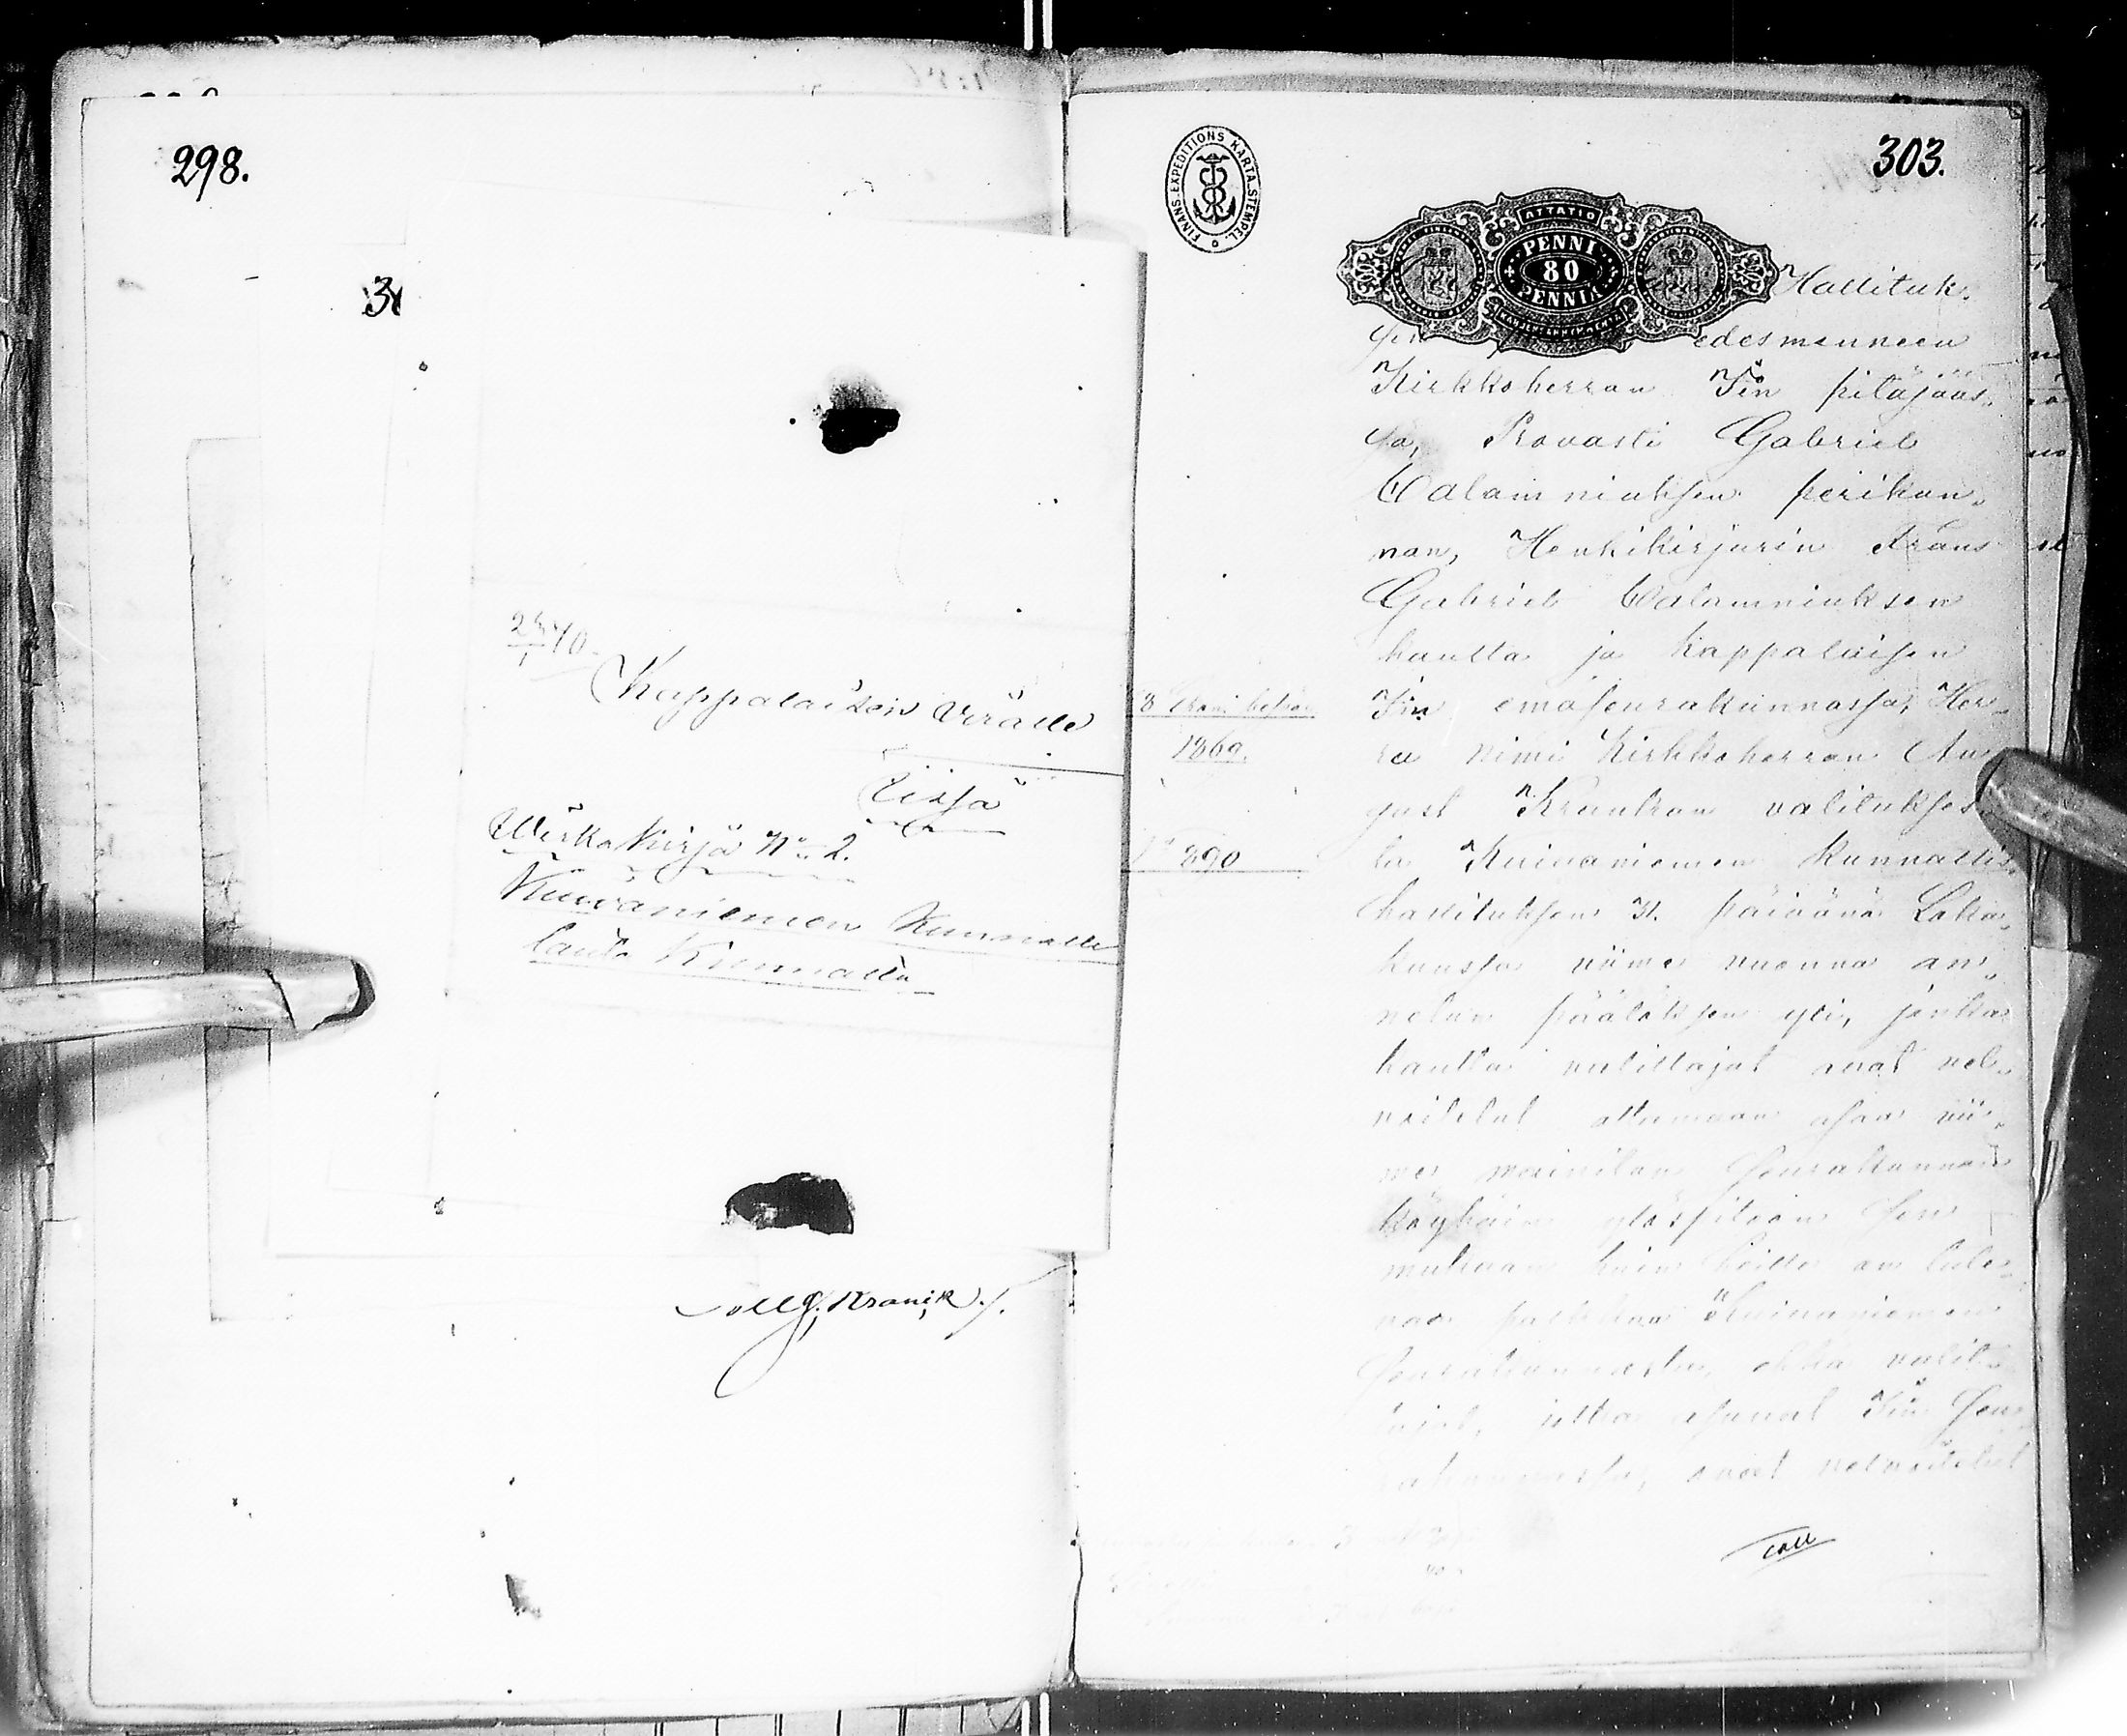 298.
3
24/1 70.
Kappalaisen Virälle
Iissä
Wirka Kirja No 2.
Kuivaniemen Kunnalle
lauta Kunnalta
Collg. Kranck /.
303.
FINANS-EXPEDITIONS KARTA-STEMPEL.
ATTATIO
PENNI
80
PENNIÄ
Hallituk-
sen edesmenneen
Kirkkoherran Iin pitäjäs-
sä, Rovasti Gabriel
Calamniuksen perikun-
nan, Henkikirjurin Frans
Gabriel Calamniuksen
kautta ja Kappalaisen
Iin emäseurakunnassa, Her-
ra nimi Kirkkoherran Au-
gust valitukses-
ta Kuivaniemen Kunnallis-
hallituksen 31. päivänä Loka-
kuussa viime vuonna an-
netun päätöksen yli, jonka
kautta valittajat ovat vel-
voitetut ottamaan osaa vii-
me mainitun Seurakunnan
köyhäin ylöspitoon sen
mukaan kuin heille on tule-
van Kuivaniemen
Seurakunnasta, ehkä valit-
tajat, jotka asuvat Iin Seu-
rakunnassa, ovat velvoitetut
1869.
No 290